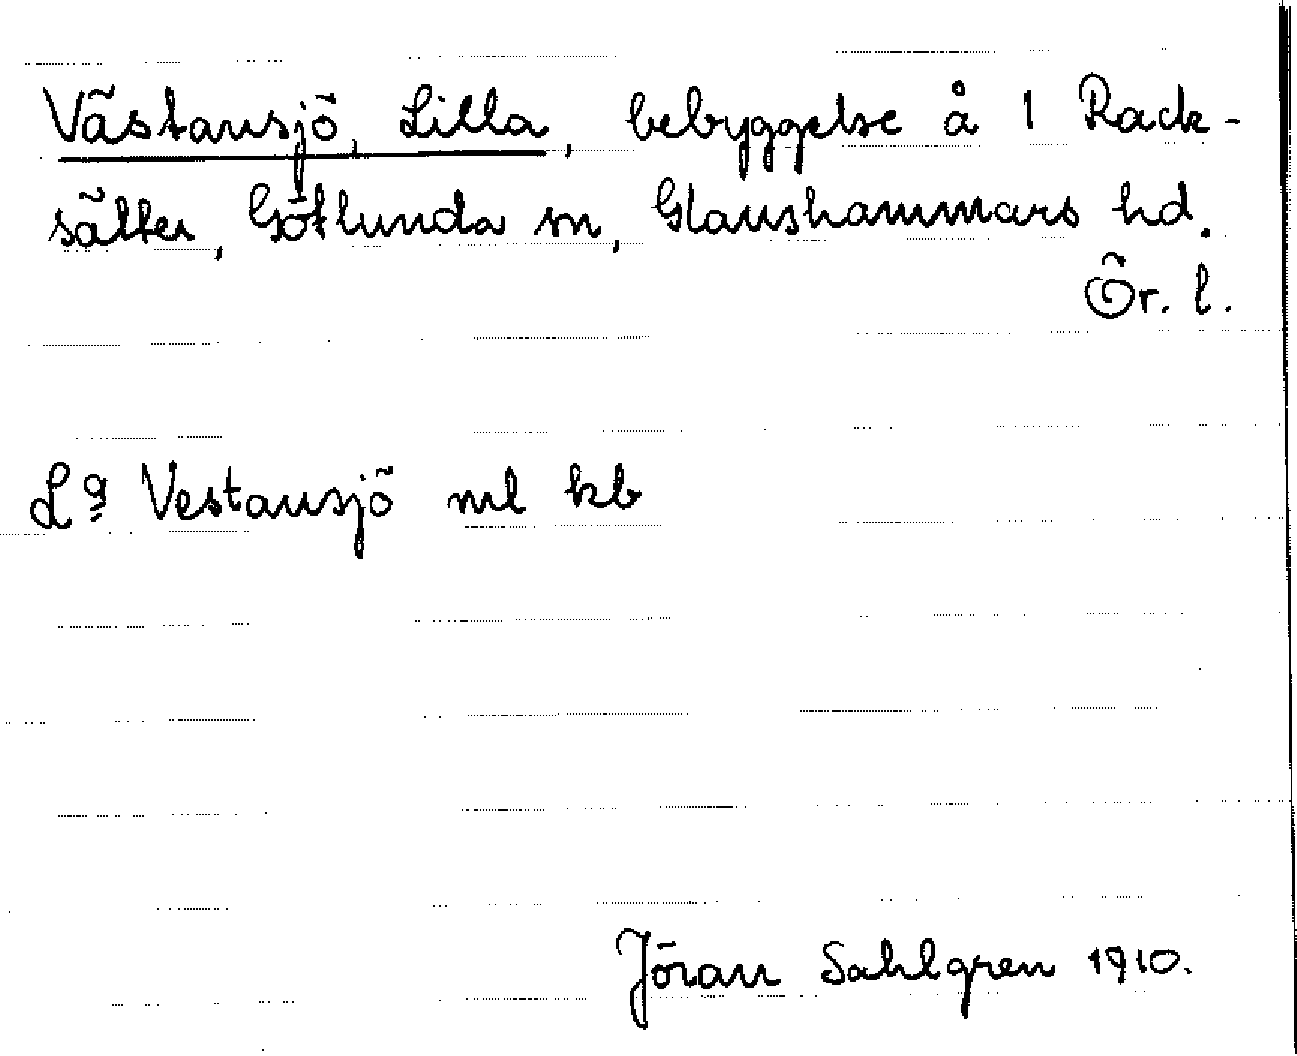 Västansjö, Lilla, bebyggelse å 1 Rack-
sätter, Götlunda sn, Glanshammars hd.
Ör. l.
La Vestansjö ml kb
Jöran Sahlgren 1910.